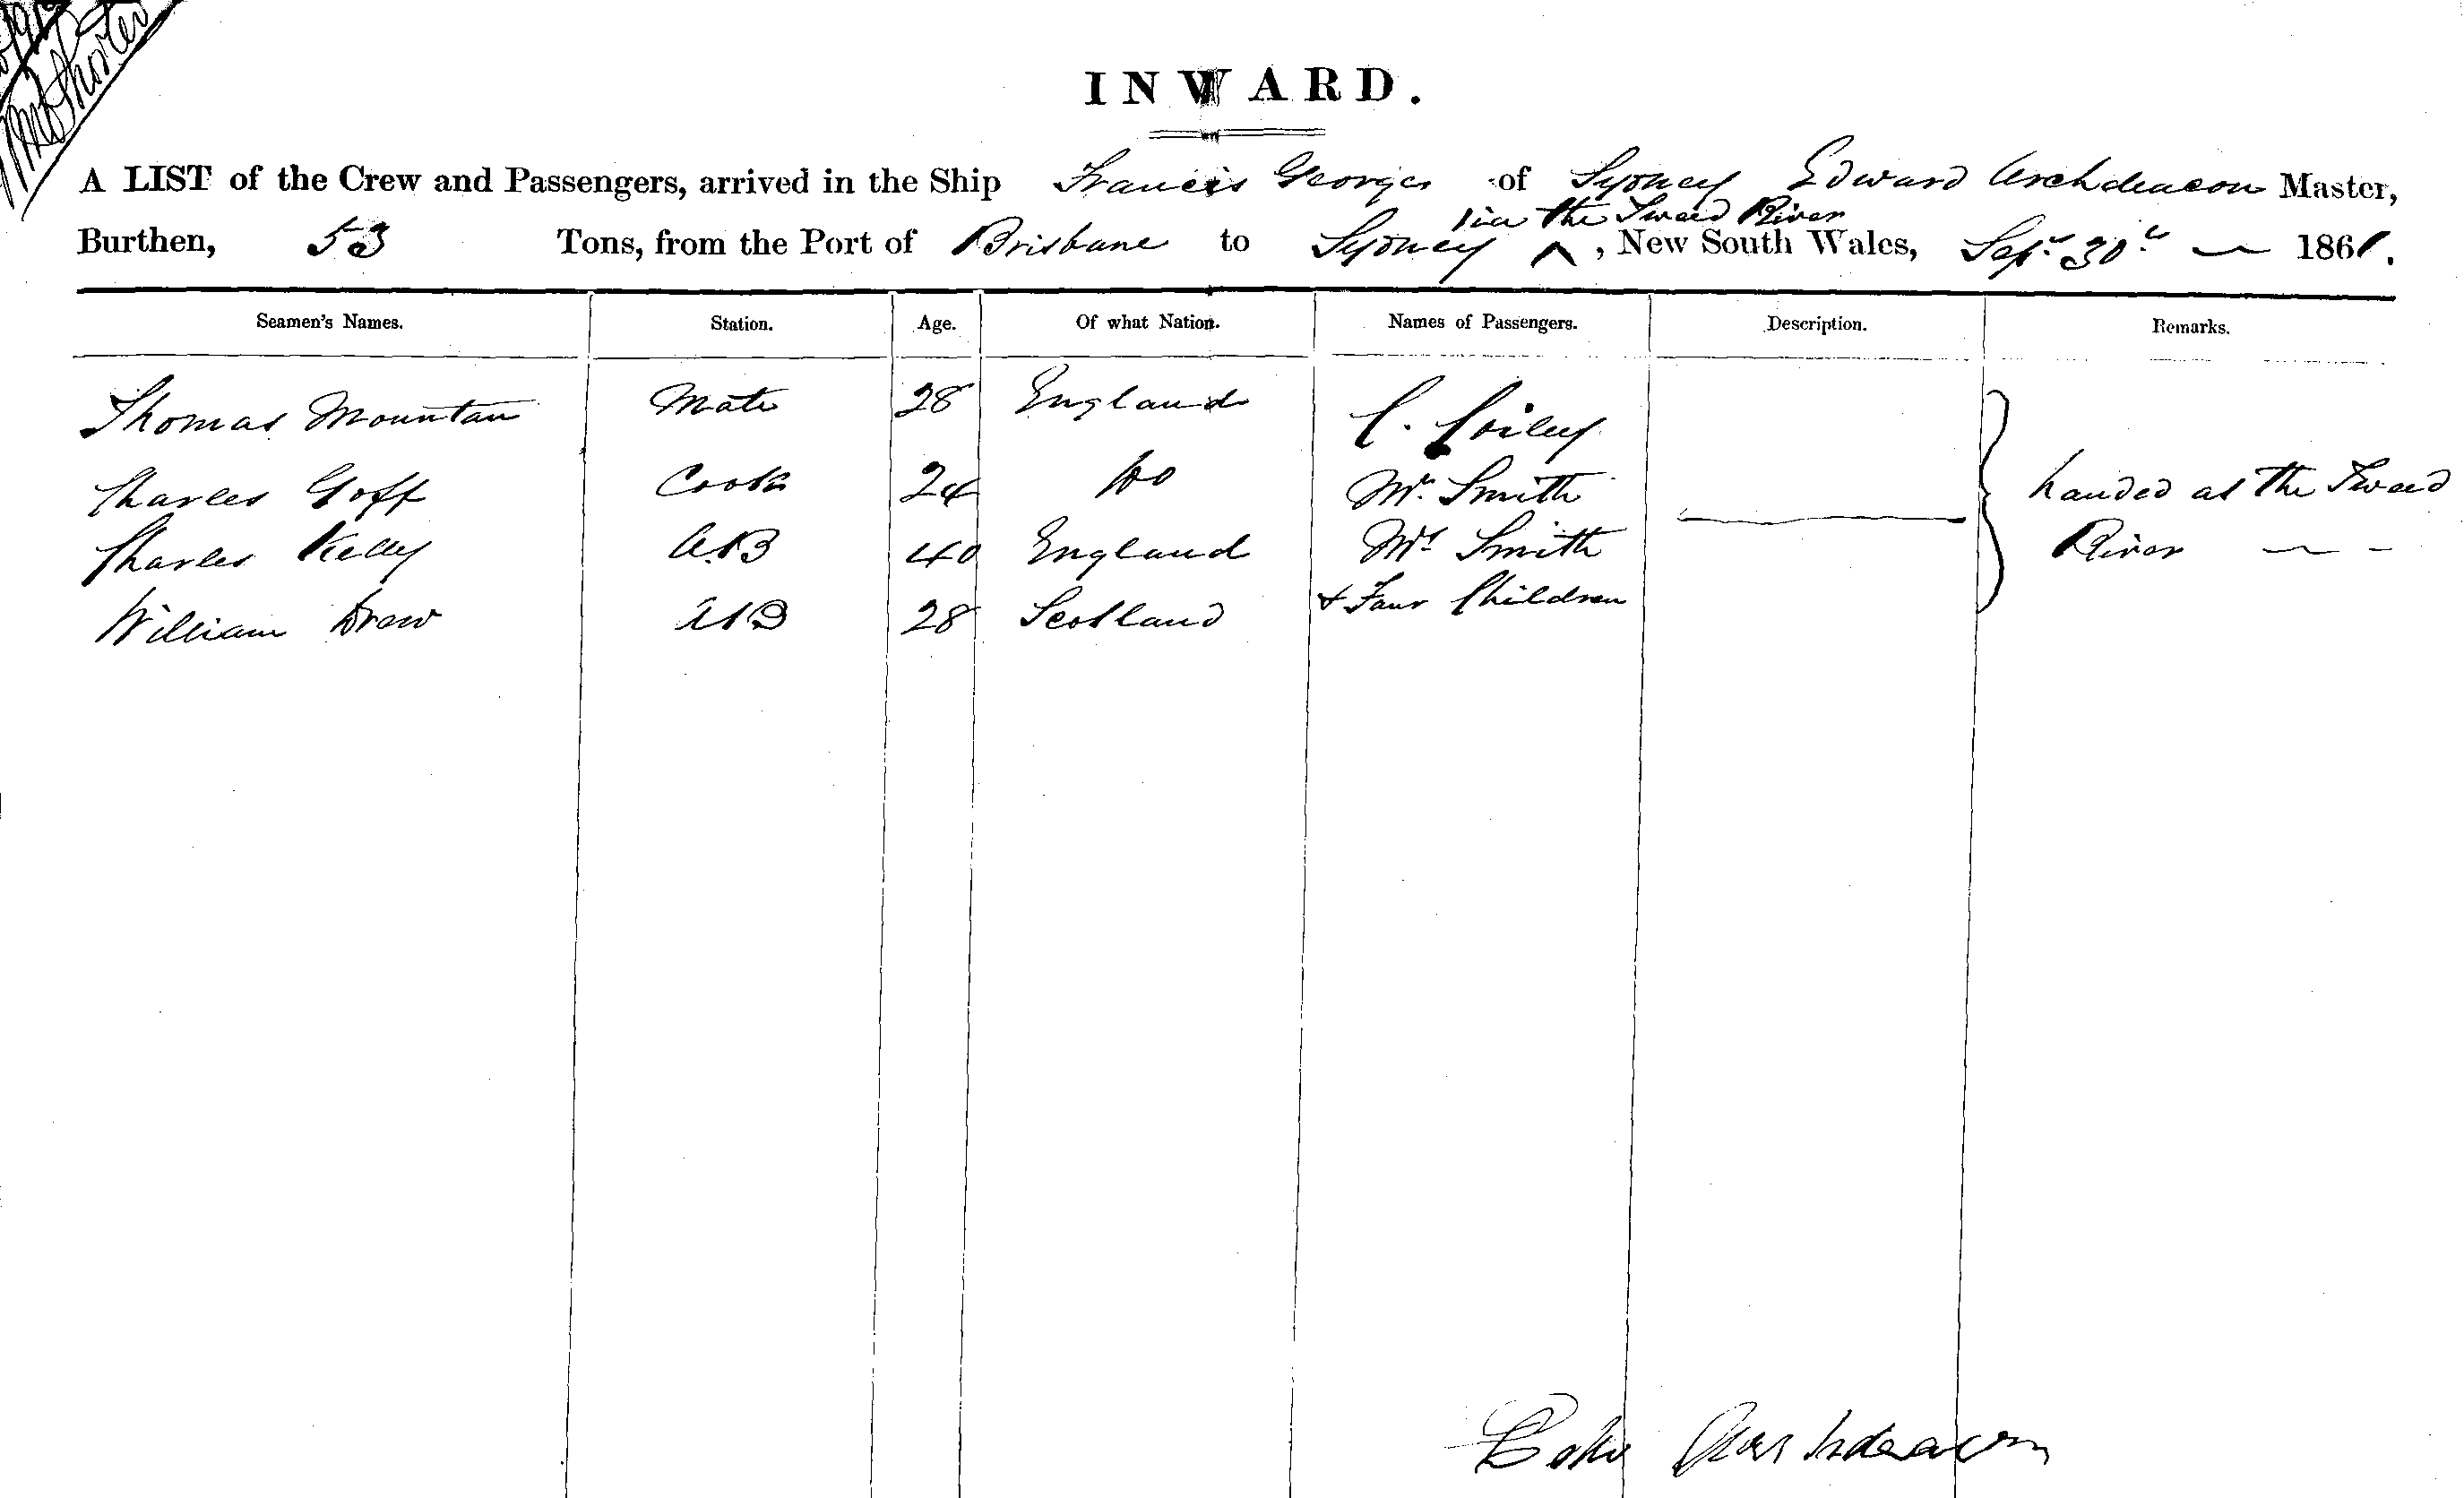 INWARD.
A LIST of the Crew and Passengers, arrived in the Ship Francis George of Sydney Edward Archdeacon Master,
via the Tweed River
Burthen, 53 Tons, from the Port of Brisbane to Sydney ^, New South Wales, Sepr 30th 1861.
Seamen's Names. Station. Age. Of what Nation. Names of Passengers. Description. Remarks.
Thomas Mountan Mate 28 England C.
Charles Goff Cook 24 Do Mr. Smith landed at the Tweed
Charles Kelly AB 40 England Mrs Smith River
William Drew AB 28 Scotland + Four Children
Archdeacon